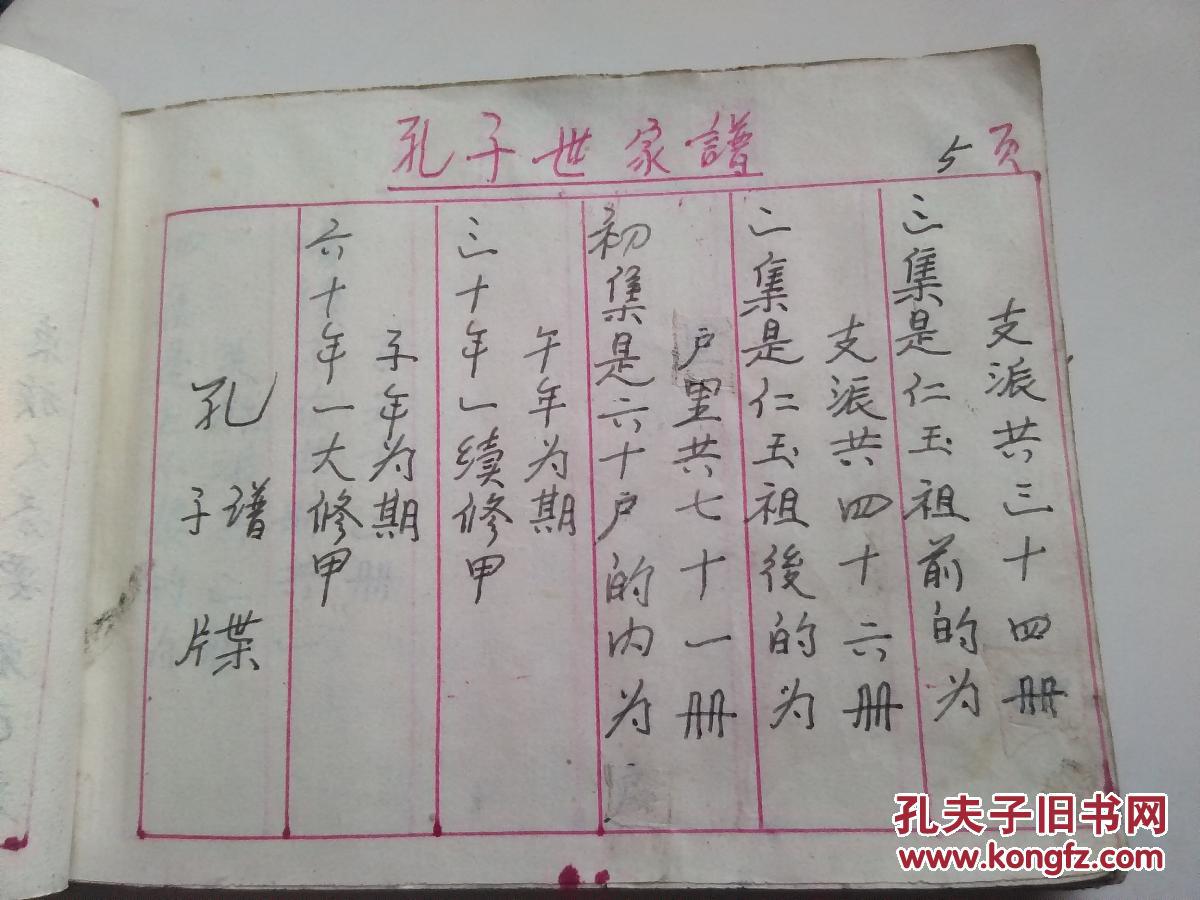 孔子世家譜
5页
孔子谱牒
六十年一大修甲
子年为期
三十年一续修甲
午年为期
初集是六十户的内为
户里共七十一册
二集是仁玉祖後的为
支派共四十六册
三集是仁玉祖前的为
支派共三十四册
孔夫子旧书网
www.kongfz.com